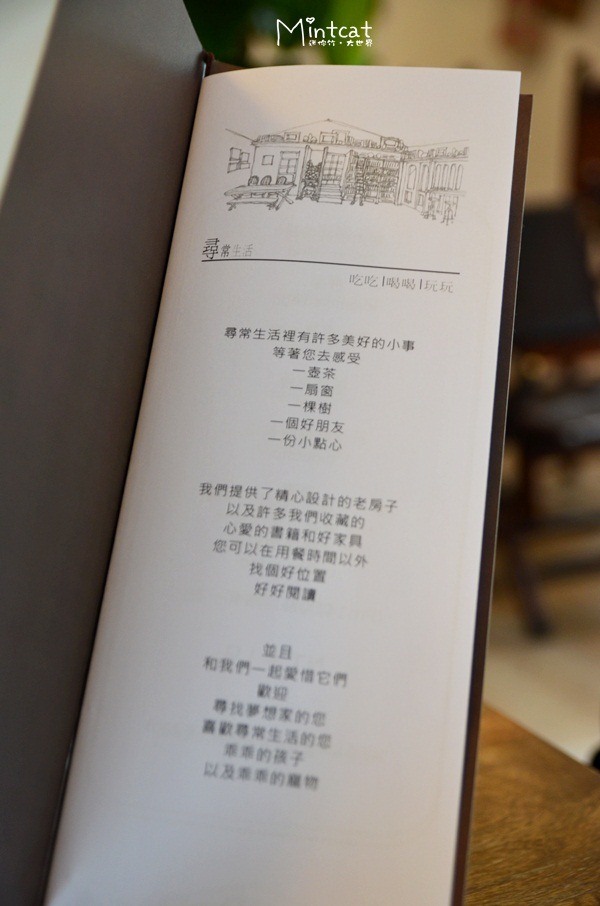 Mintcat
迷你竹•大世界
尋常生活
吃吃|喝喝|玩玩
尋常生活裡有許多美好的小事
等著您去感受
一壺茶
一扇窗
一棵樹
一個好朋友
一份小點心
我們提供了精心設計的老房子
以及許多我們收藏的
心愛的書籍和好家具
您可以在用餐時間以外
找個好位置
好好閱讀
並且
和我們一起愛惜它們
歡迎
尋找夢想家的您
喜歡尋常生活的您
乖乖的孩子
以及乖乖的寵物